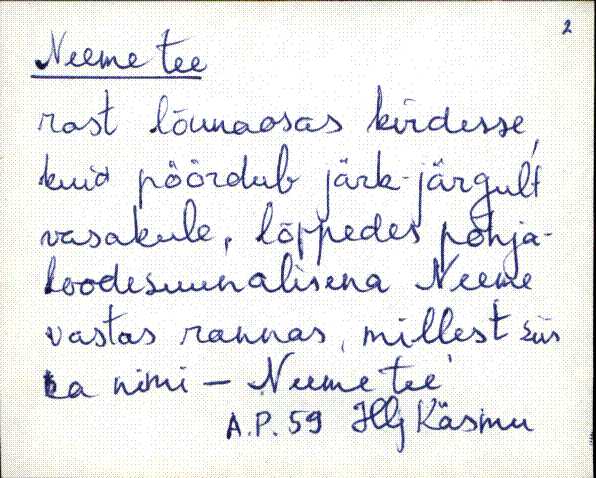 2
Neeme tee
rast lõunaosas kirdesse,
kuid pöördub järk-järgult
vasakule, lõppedes põhja-
loodesuunalisena Neeme
vastas rannas, millest siis
ka nimi – Neeme tee
A.P. 59 Hlj Käsmu